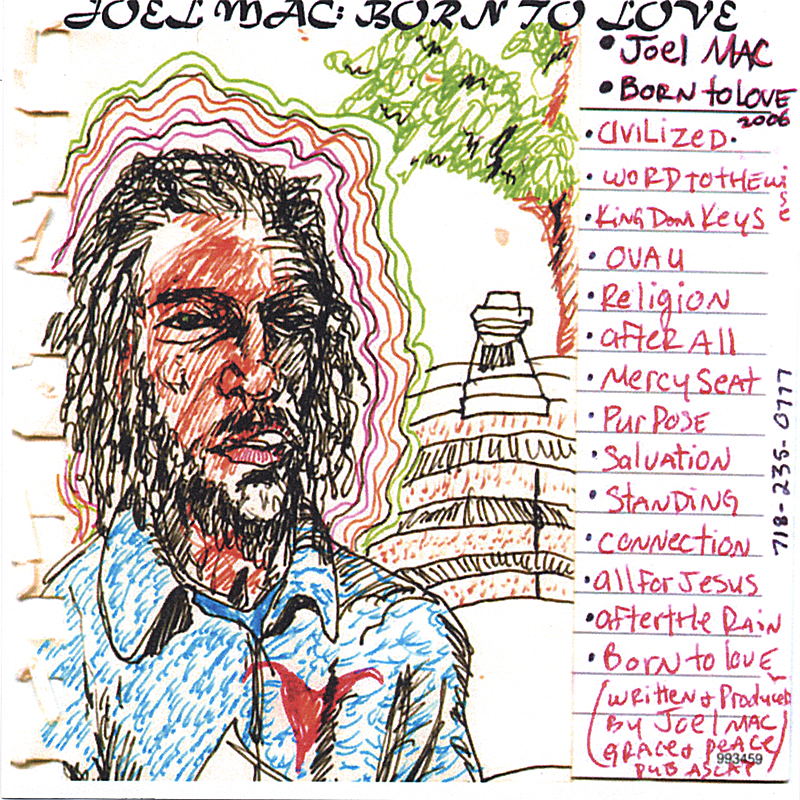 JOEL MAC: BORN TO LOVE
• Joel MAC
• BORN to LOVE
2006
• CIVILIZED.
• WORD TO THE WISE
• KINGDOM KEYS
• OVA U
• Religion
• after All
• Mercy Seat
• PURPOSE
• Salvation
• STANDING
• CONNECTION
• all for Jesus
• after the RAIN
• BORN to love
(WRITTEN & Produced
By Joel MAC)
(GRACE & PEACE)
PUB ASCAP
993459
718-235-0777